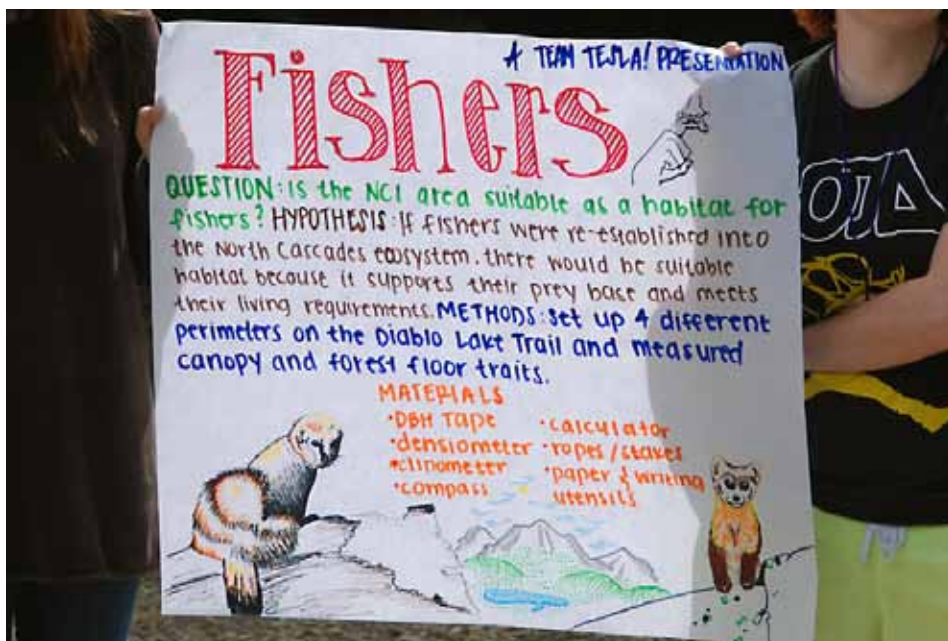 A TEAM TESLA! PRESENTATION
Fishers
QUESTION: Is the NCI area suitable as a habitat for
fishers? HYPOTHESIS: If fishers were re-established into
the North Cascades ecosystem, there would be suitable
habitat because it supports their prey base and meets
their living requirements. METHODS: Set up 4 different
perimeters on the Diablo Lake Trail and measured
canopy and forest floor traits.
MATERIALS
• DBH Tape
• densiometer
• clinometer
• compass
• calculator
• ropes/stakes
• paper & writing
utensils